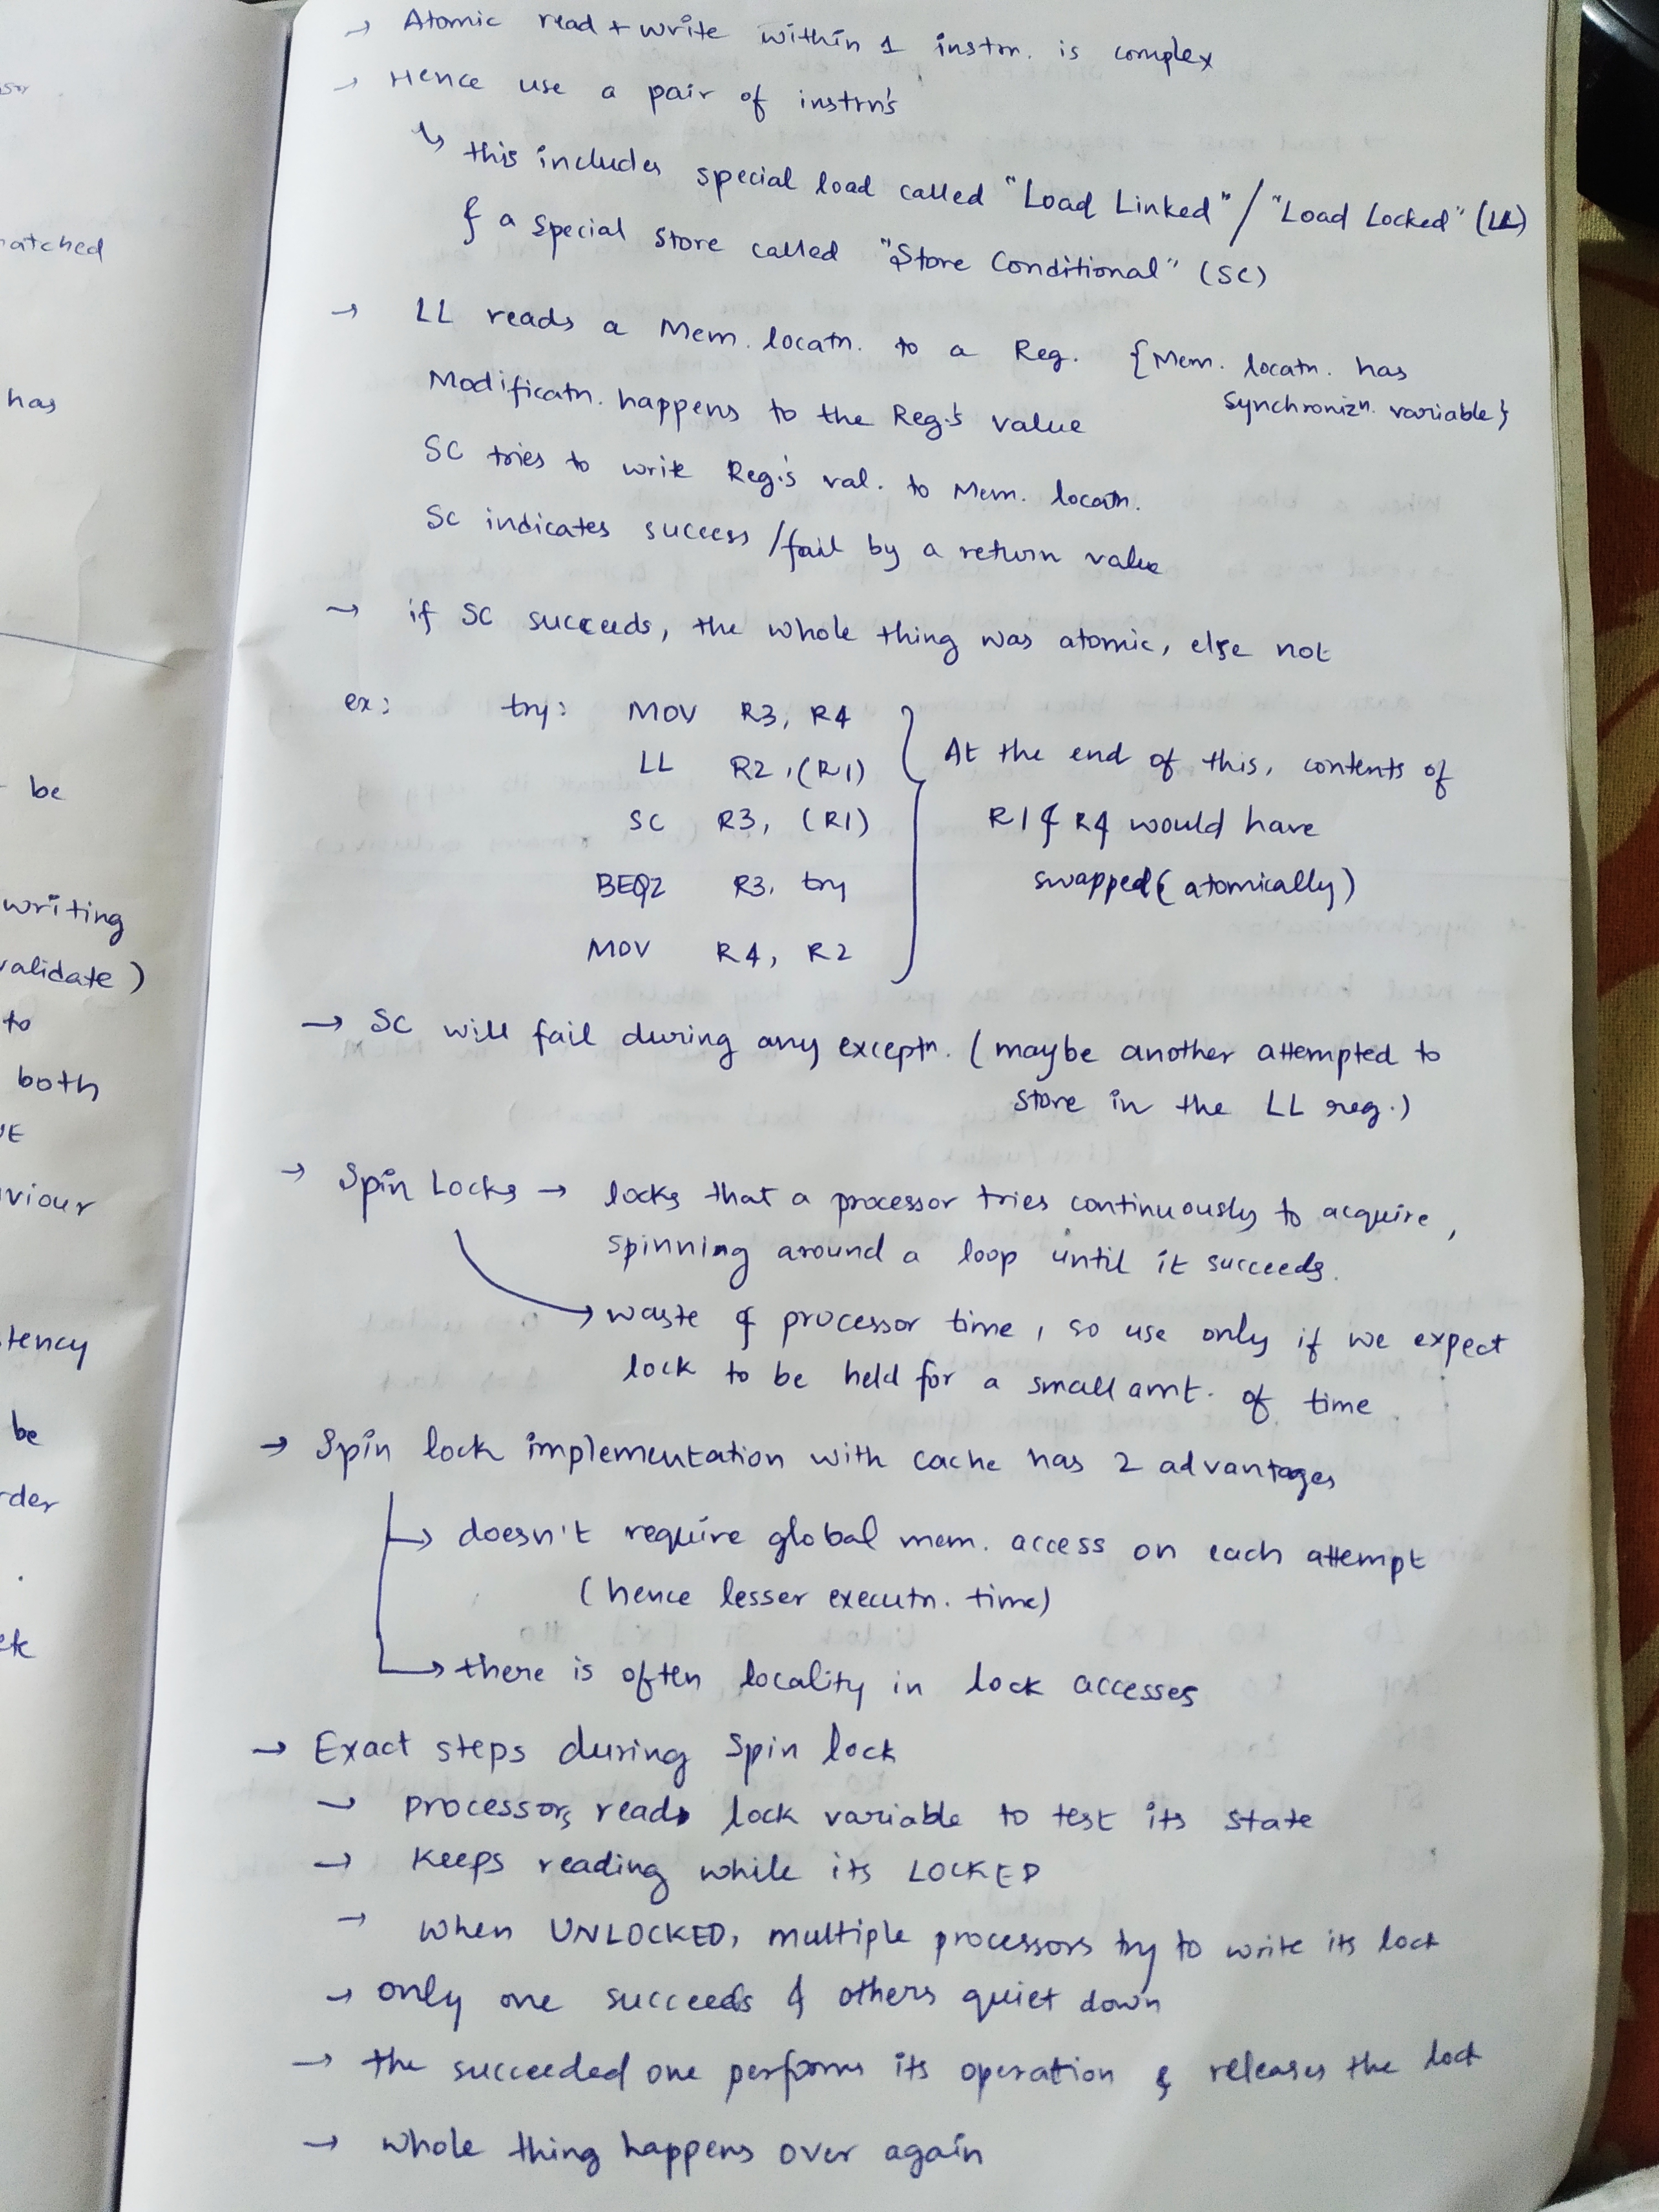 sor
matched
has
be
writing
validate)
to
both
viour
tency
be
rder
→ Atomic read + write within 1 instrn. is complex
→ Hence use a pair of instrn's
↳ this includes special load called "Load Linked" / "Load Locked" (LL)
& a special store called "Store Conditional" (SC)
→ LL reads a Mem. locatn. to a Reg. {Mem. locatn. has
synchronizn. variable}
Modificatn. happens to the Reg.'s value
SC tries to write Reg.'s val. to Mem. locatn.
SC indicates success / fail by a return value
→ if SC succeeds, the whole thing was atomic, else not
ex: try: MOV R3, R4
LL R2, (R1)
SC R3, (R1)
BEQZ R3, try
MOV R4, R2
At the end of this, contents of
R1 & R4 would have
swapped (atomically)
→ SC will fail during any exceptn. (maybe another attempted to
store in the LL reg.)
→ Spin Locks → locks that a processor tries continuously to acquire,
spinning around a loop until it succeeds.
→ waste of processor time, so use only if we expect
lock to be held for a small amt. of time
→ Spin lock implementation with cache has 2 advantages
↳ doesn't require global mem. access on each attempt
(hence lesser executn. time)
↳ there is often locality in lock accesses
→ Exact steps during Spin lock
→ processors read lock variable to test its state
→ Keeps reading while its LOCKED
→ When UNLOCKED, multiple processors try to write its lock
→ only one succeeds & others quiet down
→ the succeeded one performs its operation & releases the lock
→ whole thing happens over again